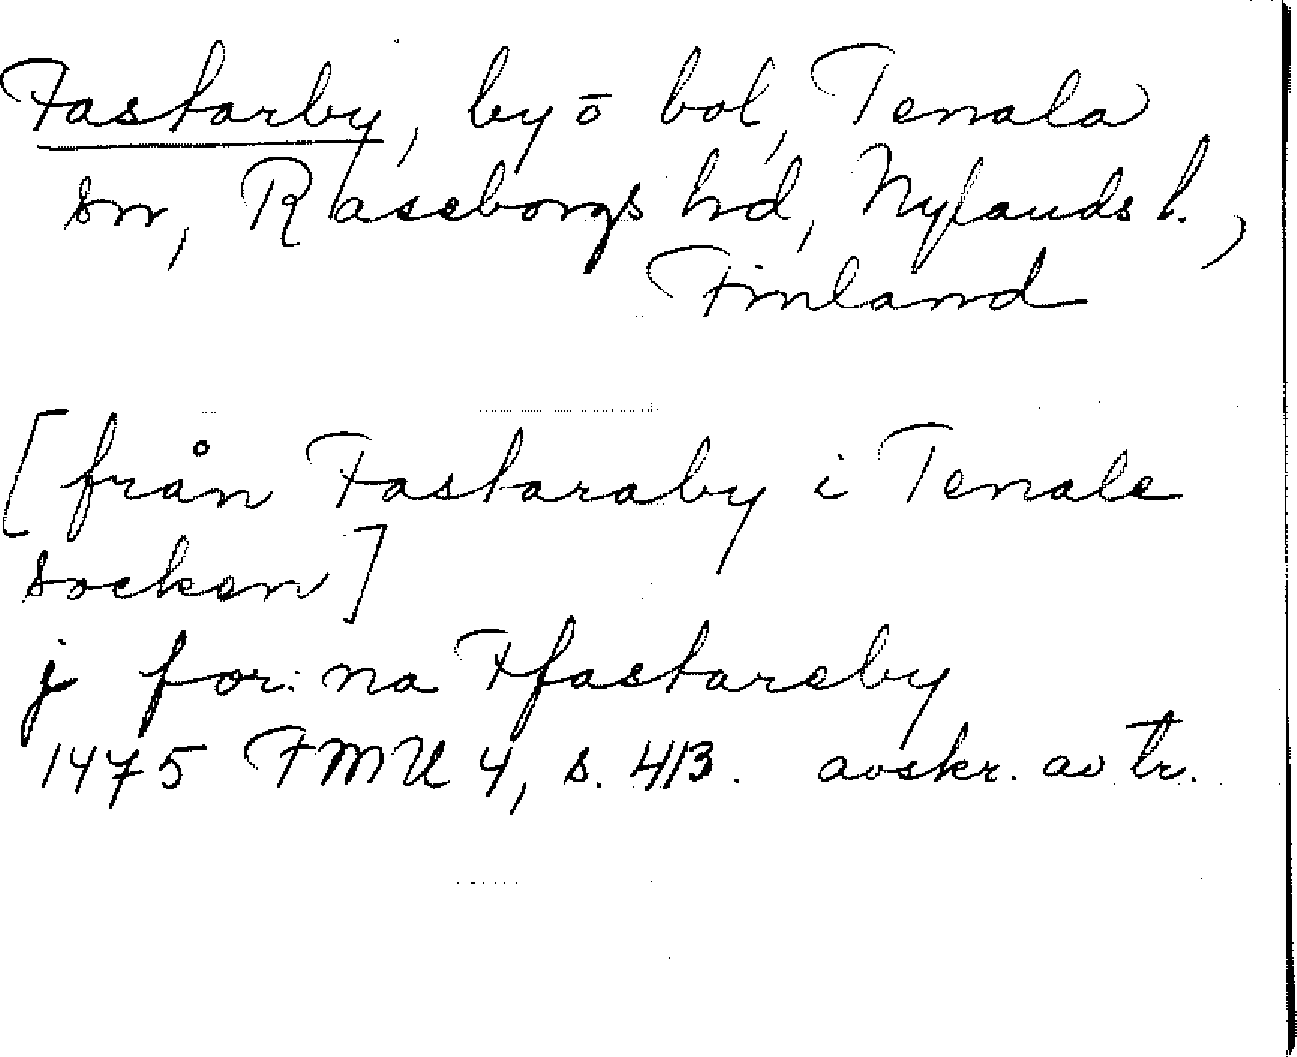 Fastarby, by ō bol, Tenala
sn, Raseborgs hd, Nylands l.,
Finland
[från Fastaraby i Tenale
socken]
j for: na Ffastareby
1475 FMU 4, s. 413. avskr. av tr.